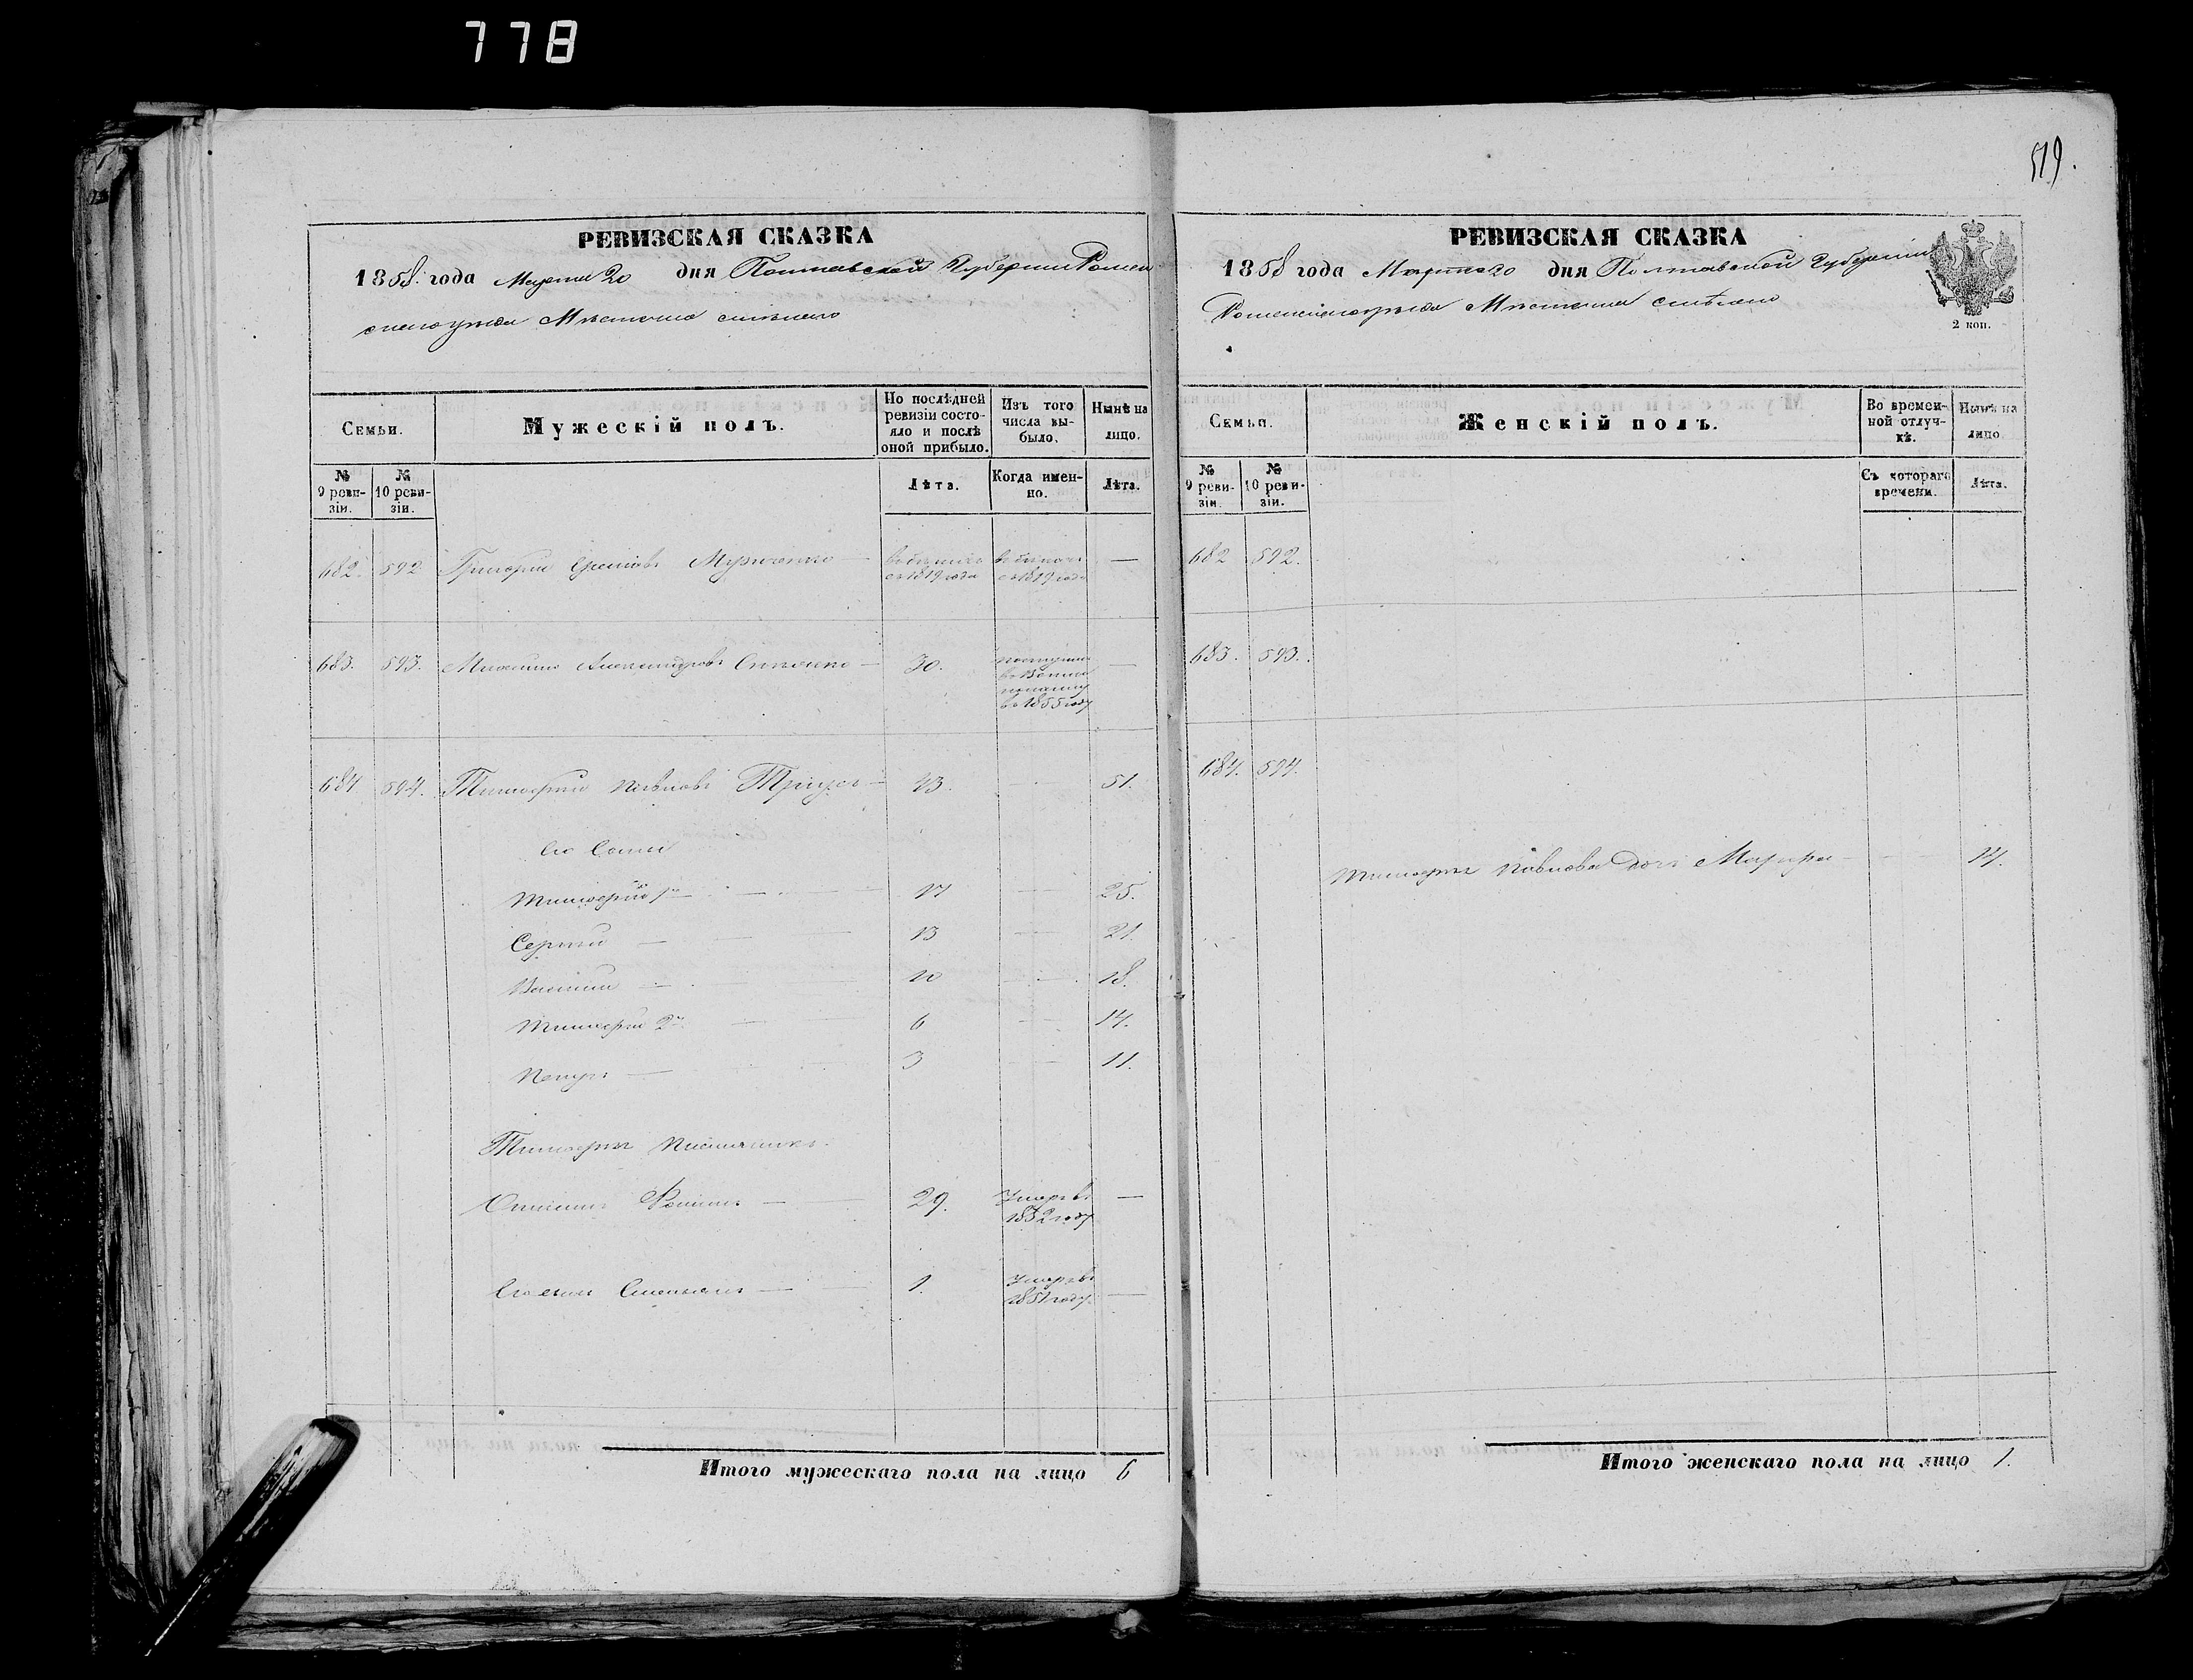 778
519.
РЕВИЗСКАЯ СКАЗКА
1858 года Марта 20 дня Полтавской Губернии Ромен
скаго уезда Местечка Смелаго
Семьи.
Мужескій полъ.
По послѣдней ревизіи состояло и послѣ оной прибыло.
Изъ того числа выбыло.
Нынѣ на лицо.
№ 9 ревизіи.
№ 10 ревизіи.
Лѣта.
Когда именно.
Лѣта.
682. 592 Григорій Мириненко — въ бегахъ съ 1819 года въ бегахъ съ 1819 года —
683. 593. Александровъ — 30. поступилъ въ 1855 году —
684 594. Тимофей Павловъ — 43. — 51.
Его Сыны
Тимофей 1й — 17 — 25.
Сергей — 13 — 21.
Василий — 10 — 18.
Тимофей 2й — 6 — 14.
Петръ — 3 — 11.
Тимофея
29. Умеръ въ 1852 году —
Его сынъ — 1. Умеръ въ 1851 году —
Итого мужескаго пола на лицо 6
РЕВИЗСКАЯ СКАЗКА
1858 года Марта 20 дня Полтавской Губернии
Роменскаго уезда Местечка Смелаго
2 коп.
Семьи.
Женскій полъ.
Во временной отлучкѣ.
Нынѣ на лицо
№ 9 ревизіи.
№ 10 ревизіи.
Съ котораго времени.
Лѣта.
682 592.
683. 593.
684. 594.
Тимофея Павлова дочь — 14.
Итого женскаго пола на лицо 1.